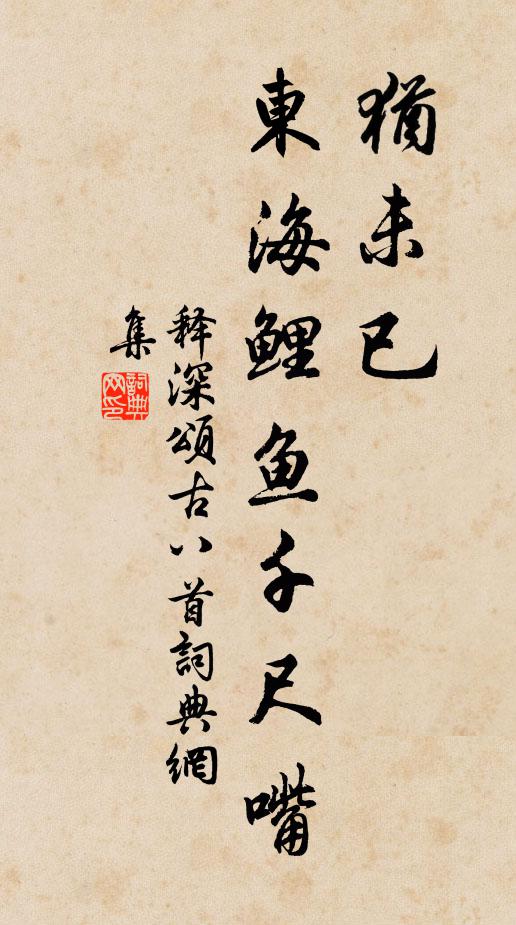 犹未已
東海鯉鱼千尺嘴
释深頌古八首詞典網
集
詞典
网印